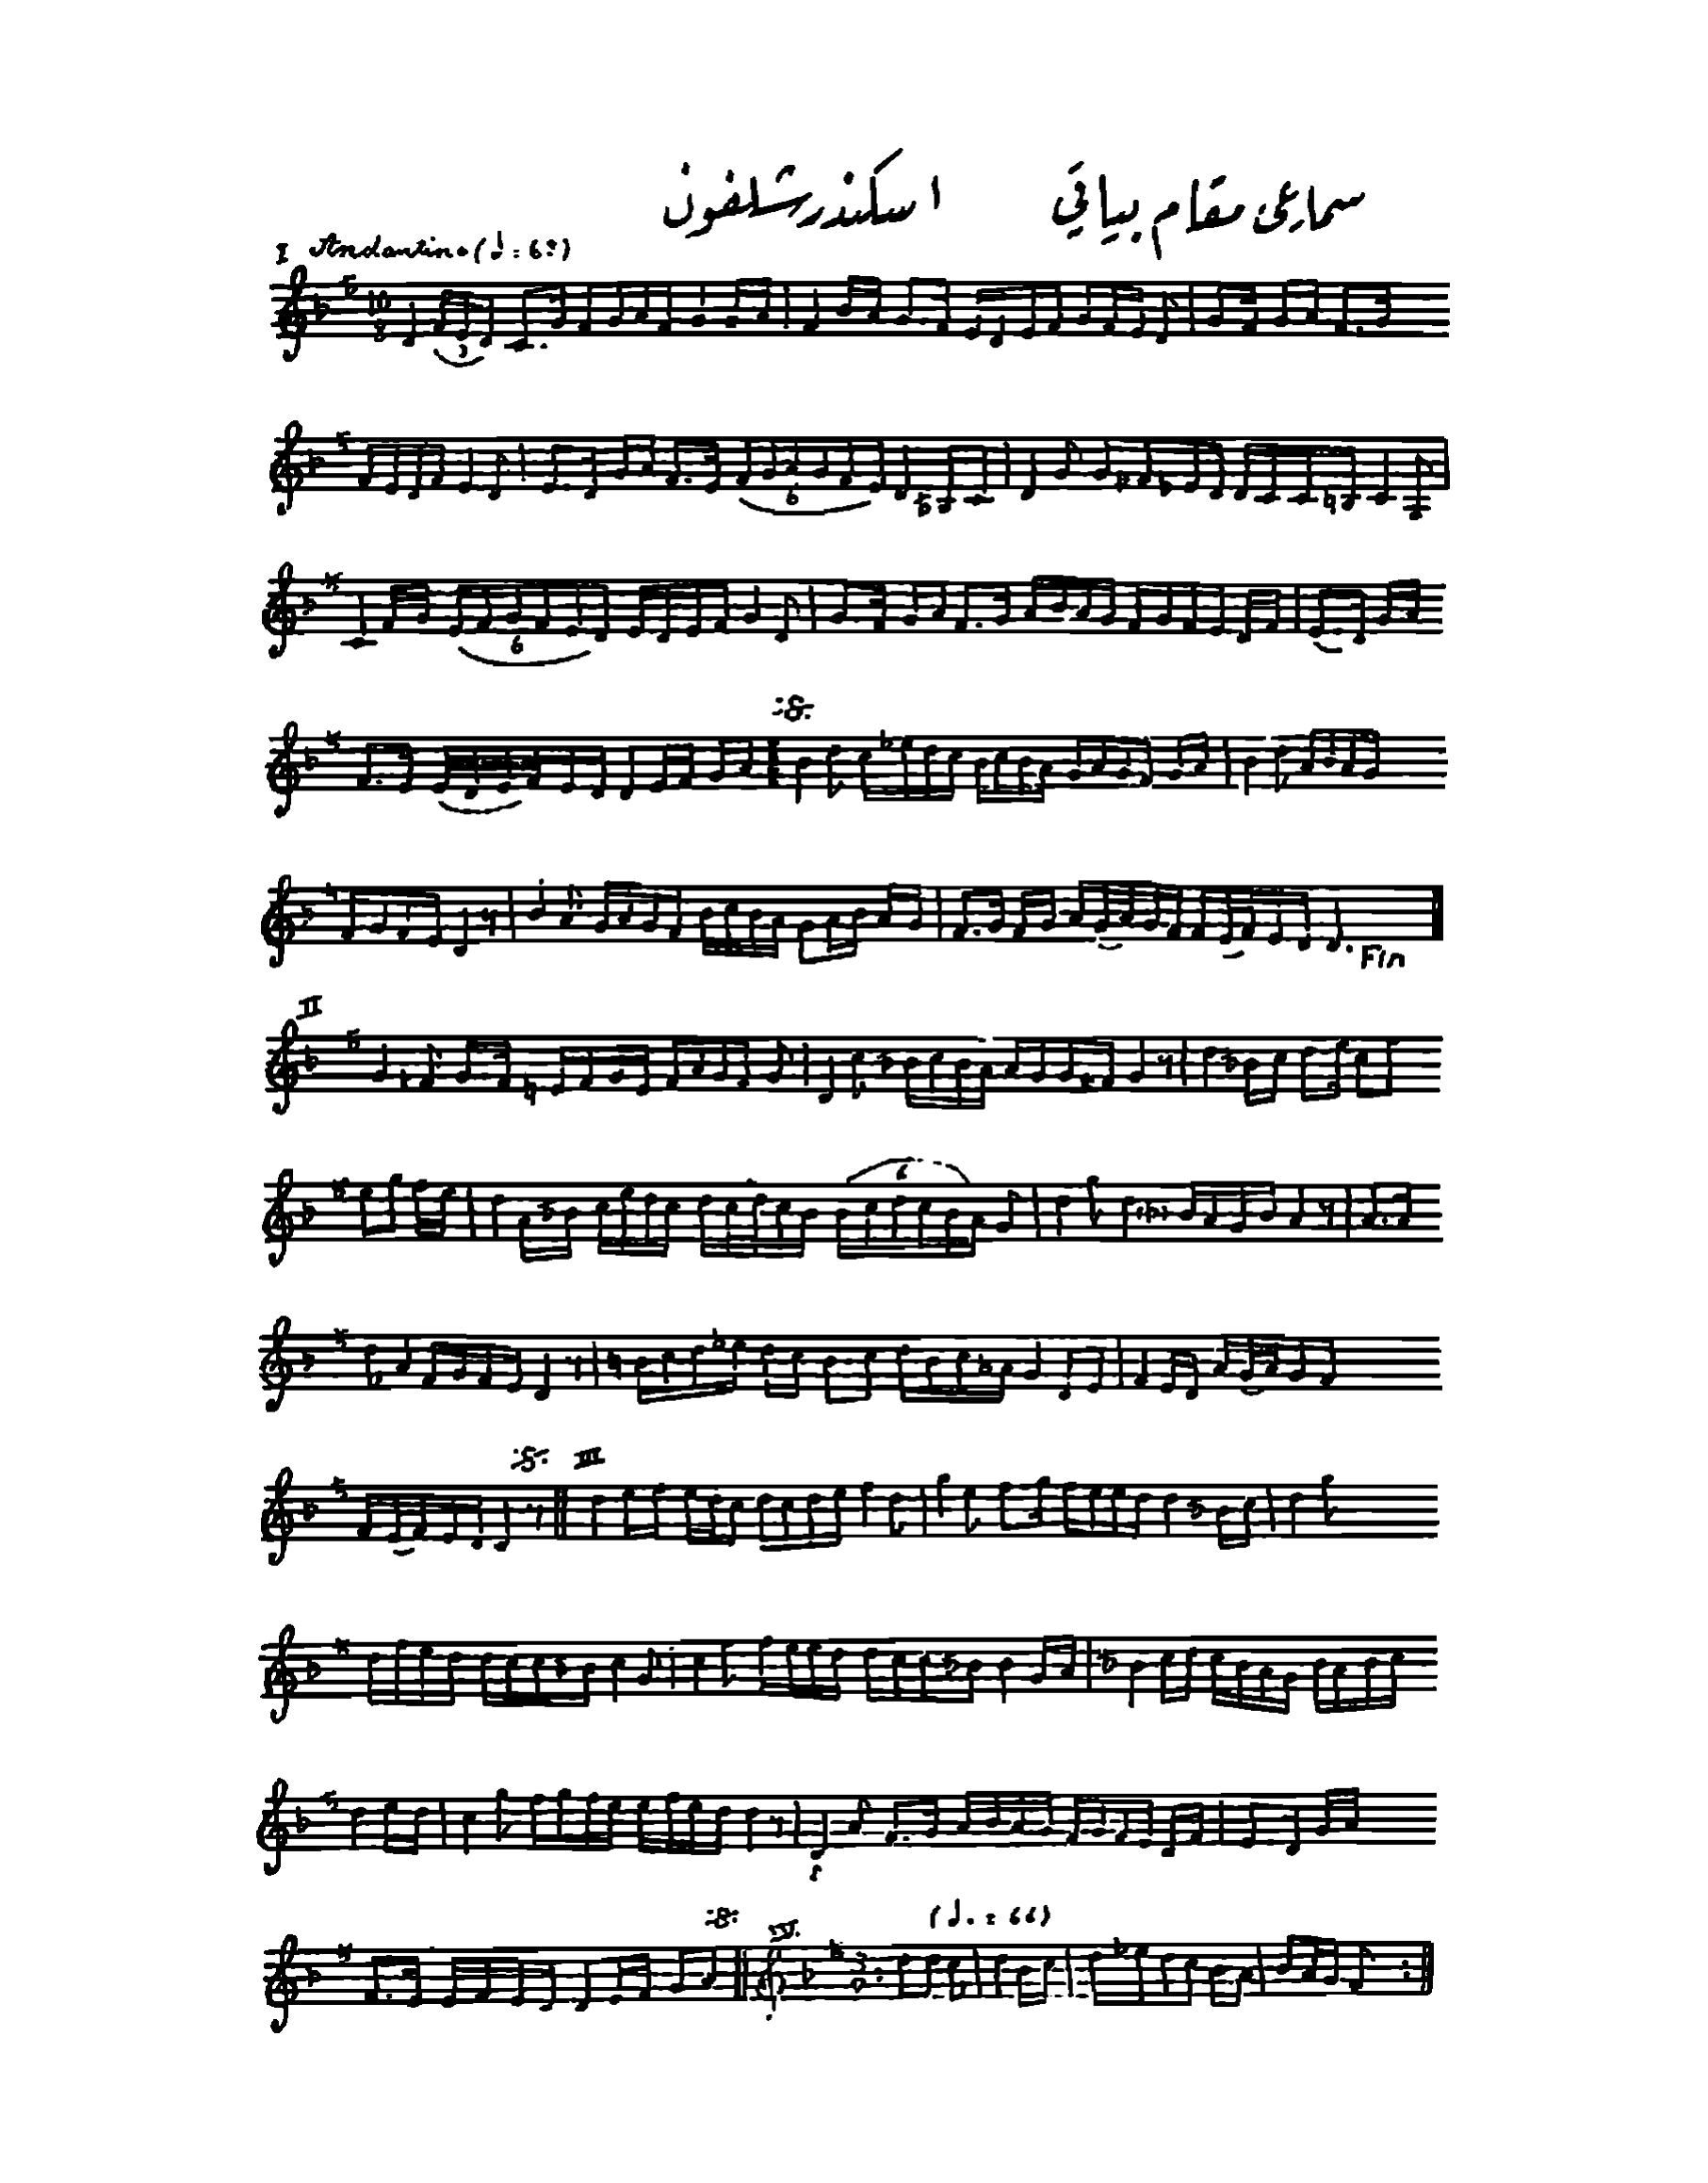 سماعي مقام بياتي اسكندر شلفون
I Andantino (♩ = 6
10
8
3
6
6
Fin
II
6
III
IV.
3
8
(♩. = 66)